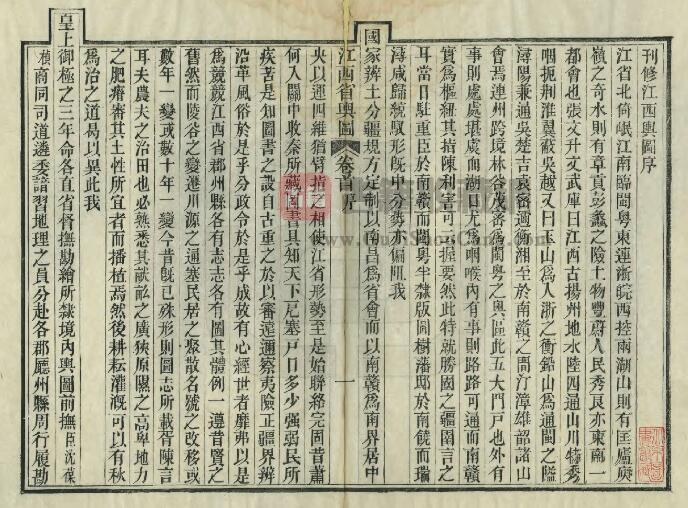 刊修江西輿圖序
江省北倚岷江南臨閩粵東連浙皖西控兩湖山則有匡廬庾
嶺之奇水則有章貢彭蠡之險土物豐蔚人民秀艮亦東南一
都會也張文升文武庫曰江西古揚州地水陸四通山川特秀
咽扼荆淮翼蔽吳越又曰玉山爲入浙之衝鉛山爲通閩之隘
潯陽兼通吳楚吉袁密邇衡湘至於南贛之間汀漳雄韶諸山
會焉連州跨境林谷茂密爲閩粵之奧區此五大門戶也外有
事則處處堪虞而湖口尤爲咽喉內有事則路路可通而南贛
實爲樞紐其措陳利害可謂握要然此特就勝國之疆圉言之
耳當日駐重臣於南贛而閩粵半隸版圖樹藩邸於南饒而瑞
潯咸歸統馭形旣中分勢亦偏阻我
國家辨土分疆規方定制以南昌爲省會而以南贛爲南界居中
江西省輿圖 卷首序 一
央以運四維猶臂指之相使江省形勢至是始聯絡完固昔蕭
何入關中收秦所藏圖書具知天下阨塞戶口多少强弱民所
疾苦是知圖書之設自古重之於以審遠邇察夷險正疆界辨
沿革風俗於是乎分政令於是乎成故有心經世者靡弗以是
爲競競江西省郡州縣各有志志各有圖其體例一遵昔賢之
舊然而陵谷之變遷川源之通塞民居之聚散名號之改移或
數年一變或數十年一變今昔旣已殊形則圖志所載胥陳言
耳夫農夫之治田也必熟悉其畎畝之廣狹原隰之高卑地力
之肥瘠審其土性所宜者而播植焉然後耕耘灌漑可以有秋
爲治之道曷以異此我
皇上御極之三年命各直省督撫勘繪所隸境內輿圖前撫臣沈葆
楨商同司道遴委諳習地理之員分赴各郡廳州縣周行履勘